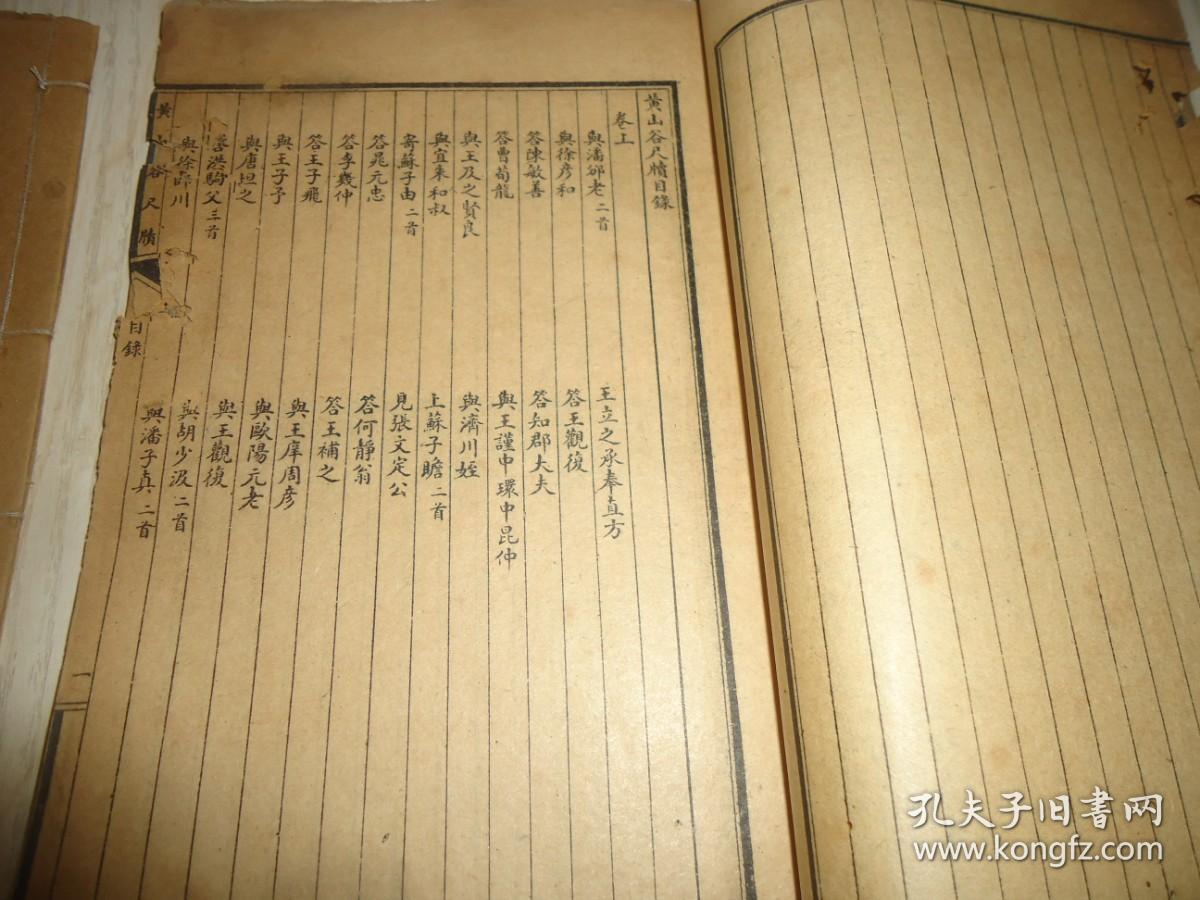 黃山谷尺牘目錄
卷上
與潘邠老二首
王立之承奉直方
與徐彥和
答王觀復
答陳敏善
答知郡大夫
答曹荀龍
與王謹中環中昆仲
與王及之賢良
與濟川姪
與宜來和叔
上蘇子瞻二首
寄蘇子由二首
見張文定公
答晁元忠
答何靜翁
答李幾仲
答王補之
答王子飛
與王庠周彥
與王子予
與歐陽元老
與唐坦之
與王觀復
答洪駒父三首
與胡少汲二首
與徐師川
與潘子真二首
黃山谷尺牘
目錄
一
孔夫子旧书网
www.kongfz.com